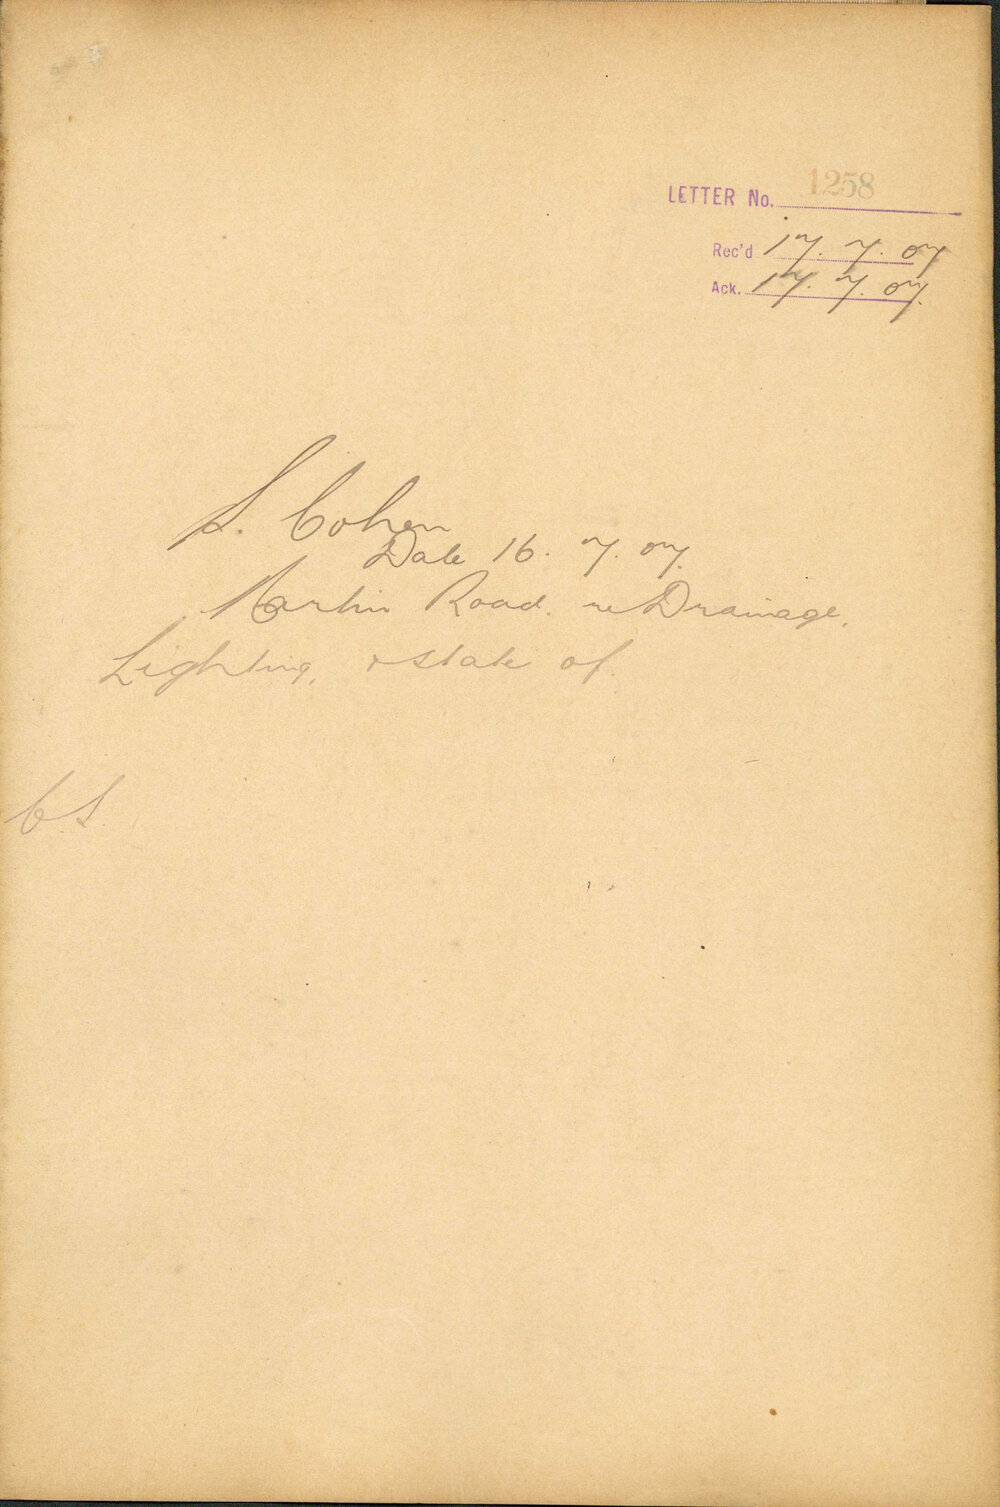 LETTER No. 1258
Rec'd 17. 7. 07
Ack. 17. 7. 07.
S. Cohen
Date 16. 7. 07.
Martin Road. re Drainage,
Lighting, & state of.
C.S.